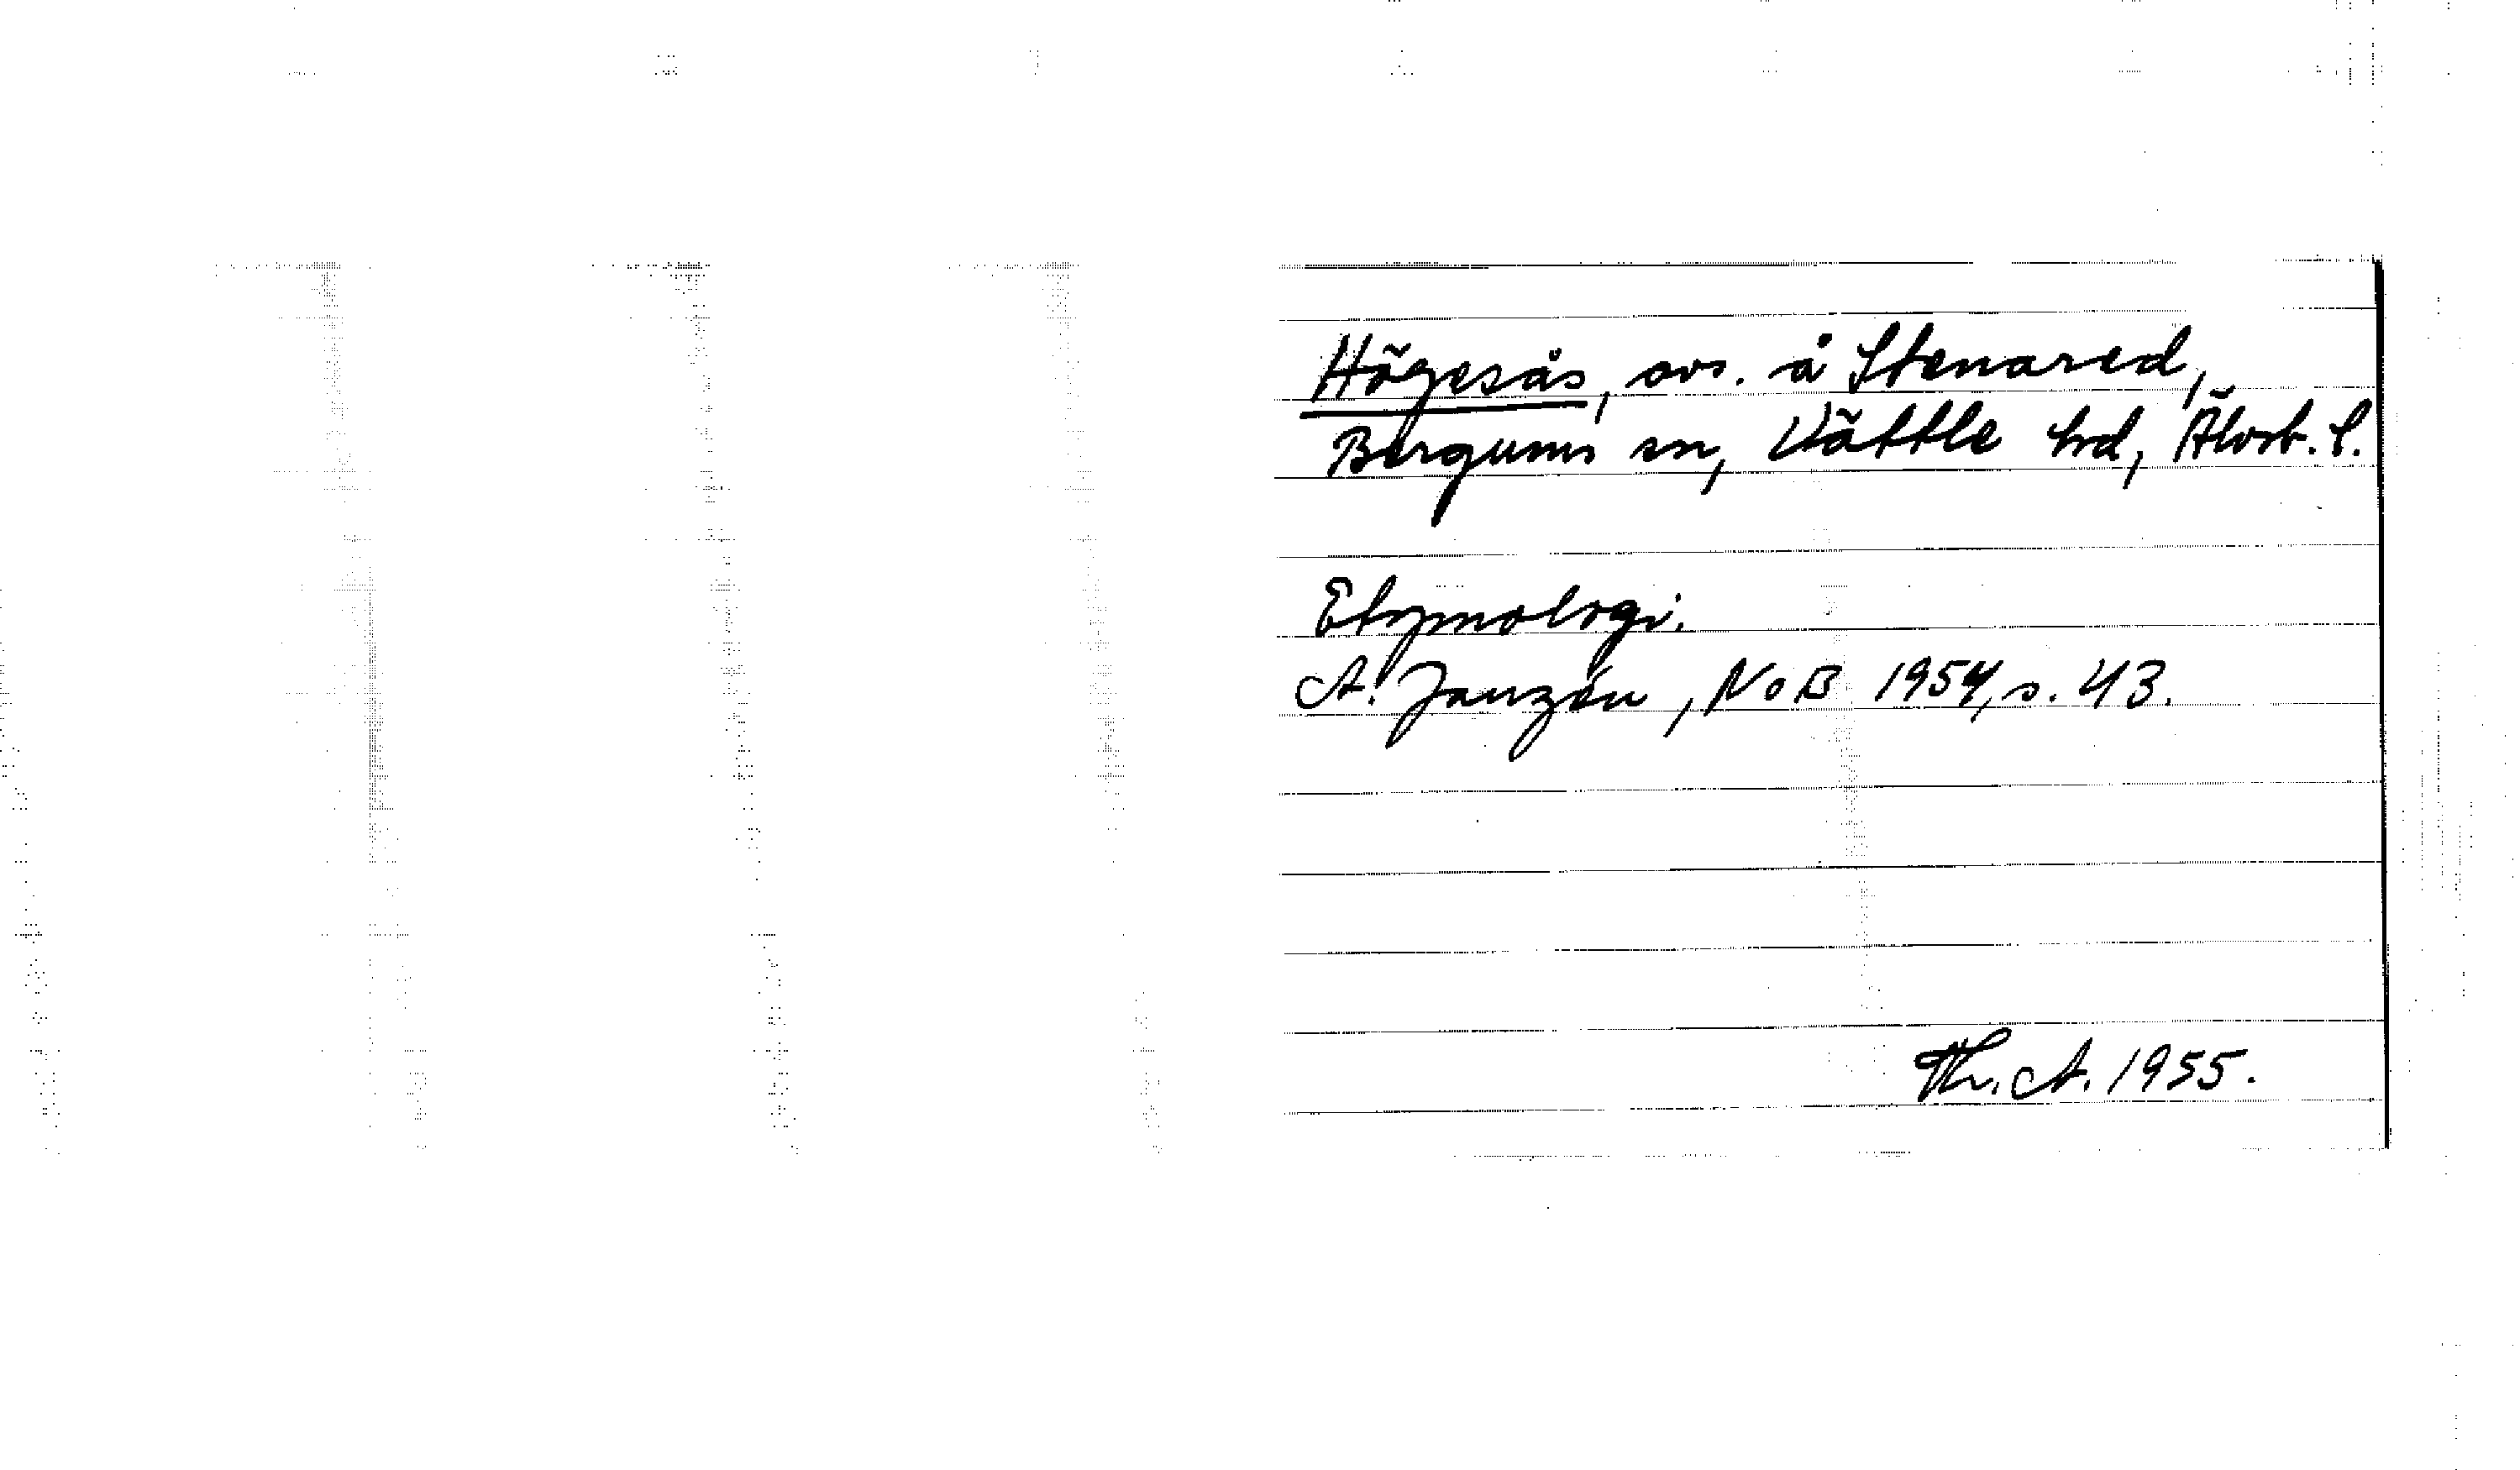 Högesås, avs. å Stenared,
Bergums sn, Vättle hd, Älvsb. l.
Etymologi.
A. Janzén, NoB 1954, s. 43.
Th. A. 1955.